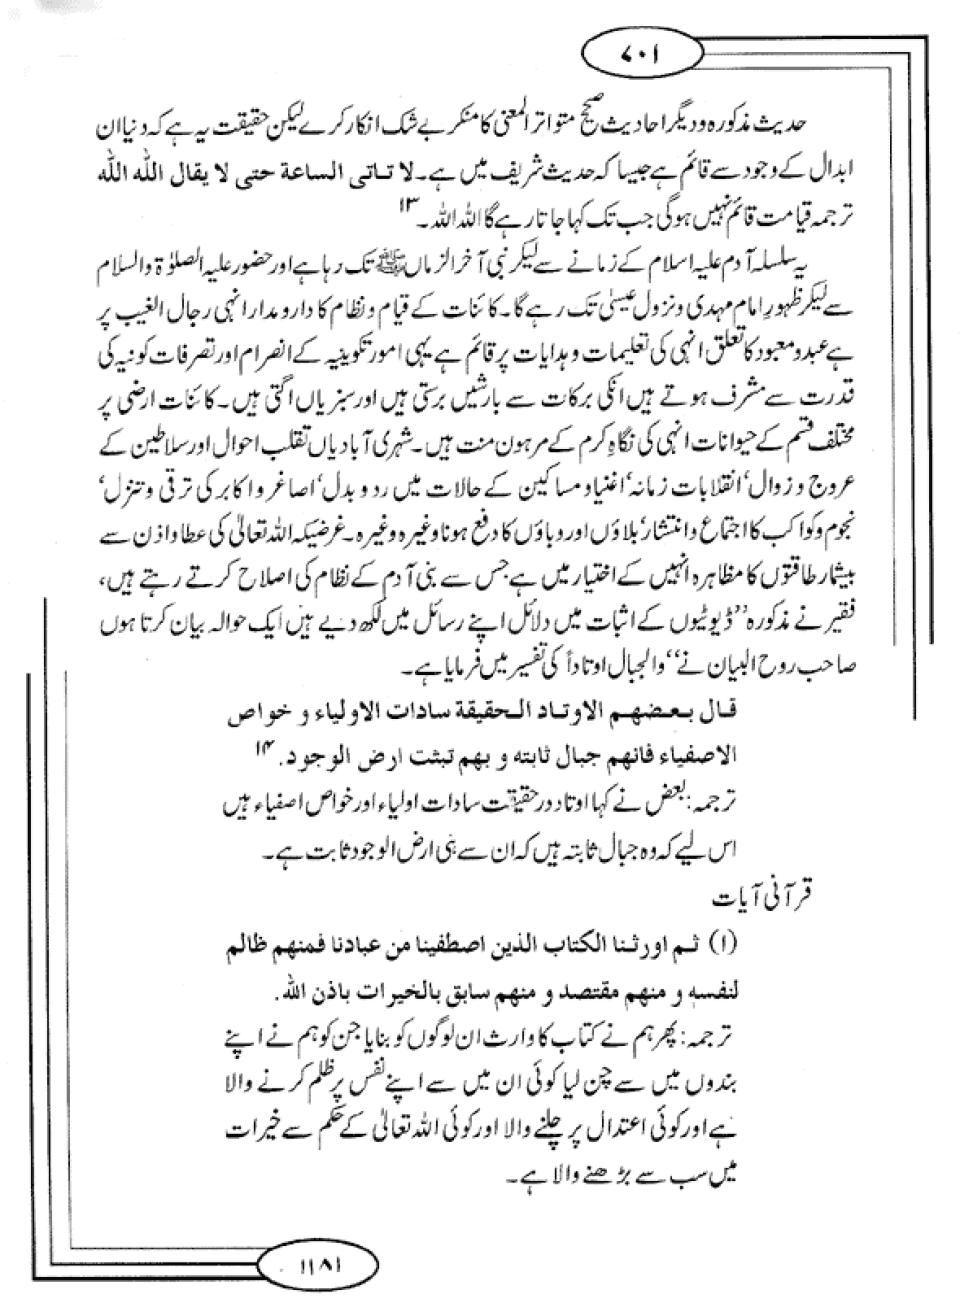 ۷۰۱
حدیث مذکورہ و دیگر احادیث صحیح متواتر المعنی کا منکر بے شک انکار کرے لیکن حقیقت یہ ہے کہ دنیا ان
ابدال کے وجود سے قائم ہے جیسا کہ حدیث شریف میں ہے۔ لا تاتی الساعة حتی لا یقال اللہ اللہ
ترجمہ قیامت قائم نہیں ہوگی جب تک کہا جاتا رہے گا اللہ اللہ۔ ۱۳
یہ سلسلہ آدم علیہ اسلام کے زمانے سے لیکر نبی آخر الزماں ﷺ تک رہا ہے اور حضور علیہ الصلوٰۃ والسلام
سے لیکر ظہورِ امام مہدی و نزول عیسیٰ تک رہے گا۔ کائنات کے قیام و نظام کا دارومدار انہی رجال الغیب پر
ہے عبد و معبود کا تعلق انہی کی تعلیمات و ہدایات پر قائم ہے یہی امور تکوینیہ کے انصرام اور تصرفات کونیہ کی
قدرت سے مشرف ہوتے ہیں انکی برکات سے بارشیں برستی ہیں اور سبزیاں اگتی ہیں۔ کائنات ارضی پر
مختلف قسم کے حیوانات انہی کی نگاہِ کرم کے مرہون منت ہیں۔ شہری آبادیاں تقلب احوال اور سلاطین کے
عروج و زوال‘ انقلابات زمانہ‘ اغنیا و مساکین کے حالات میں ردوبدل‘ اصاغر و اکابر کی ترقی و تنزل‘
نجوم و کواکب کا اجتماع و انتشار‘ بلاؤں اور وباؤں کا دفع ہونا وغیرہ وغیرہ۔ غرضیکہ اللہ تعالیٰ کی عطا و اذن سے
بیشمار طاقتوں کا مظاہرہ انہیں کے اختیار میں ہے جس سے بنی آدم کے نظام کی اصلاح کرتے رہتے ہیں،
فقیر نے مذکورہ ’’ڈیوٹیوں کے اثبات میں دلائل اپنے رسائل میں لکھ دیے ہیں ایک حوالہ بیان کرتا ہوں
صاحب روح البیان نے ‘‘والجبال اوتاداً کی تفسیر میں فرمایا ہے۔
قال بعضهم الاوتاد الحقیقة سادات الاولیاء و خواص
الاصفیاء فانهم جبال ثابته و بهم تبثت ارض الوجود. ۱۴
ترجمہ: بعض نے کہا اوتاد در حقیقت سادات اولیاء اور خواص اصفیاء ہیں
اس لیے کہ وہ جبال ثابتہ ہیں کہ ان سے ہی ارض الوجود ثابت ہے۔
قرآنی آیات
(۱) ثم اورثنا الکتاب الذین اصطفینا من عبادنا فمنهم ظالم
لنفسه و منهم مقتصد و منهم سابق بالخیرات باذن اللہ.
ترجمہ: پھر ہم نے کتاب کا وارث ان لوگوں کو بنایا جن کو ہم نے اپنے
بندوں میں سے چن لیا کوئی ان میں سے اپنے نفس پر ظلم کرنے والا
ہے اور کوئی اعتدال پر چلنے والا اور کوئی اللہ تعالیٰ کے حکم سے خیرات
میں سب سے بڑھنے والا ہے۔
۱۱۸۱